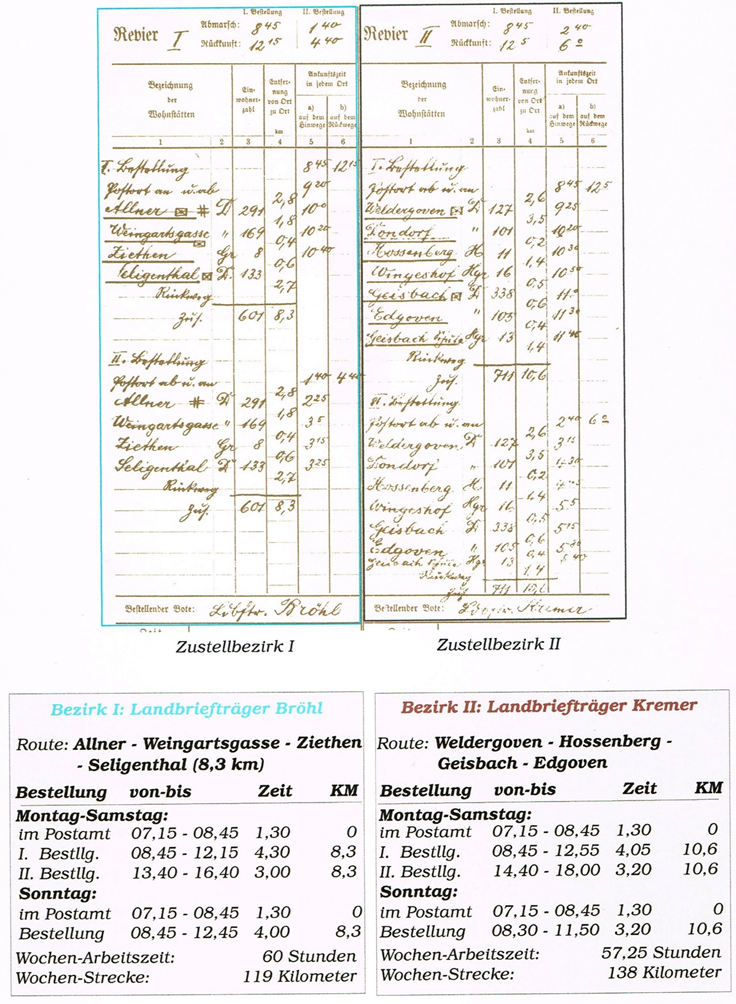 I. Bestellung II. Bestellung
Revier I Abmarsch: 8 45 1 40
Rückkunft: 12 15 4 40
Bezeichnung der Wohnstätten
Ein-wohner-zahl
Entfer-nung von Ort zu Ort km
Ankunftszeit in jedem Ort
a) auf dem Hinwege b) auf dem Rückwege
1 2 3 4 5 6
I. Bestellung 8 45 12 15
Postort an u. ab 9 20
2,8
Allner # D 291 10 00
1,8
Weingartsgasse " 169 10 20
0,4
Ziethen Gr 8 10 40
0,6
Seligenthal D. 133
2,7
Rückweg
Zus. 601 8,3
II. Bestellung
Postort ab u. an 1 40 4 40
2,8
Allner # D 291 2 25
1,8
Weingartsgasse " 169 3 5
0,4
Ziethen Gr 8 3 15
0,6
Seligenthal D 133 3 25
2,7
Rückweg
Zus. 601 8,3
Bestellender Bote: Bröhl
Zustellbezirk I
I. Bestellung II. Bestellung
Revier II Abmarsch: 8 45 2 40
Rückkunft: 12 5 6 0
Bezeichnung der Wohnstätten
Ein-wohner-zahl
Entfer-nung von Ort zu Ort km
Ankunftszeit in jedem Ort
a) auf dem Hinwege b) auf dem Rückwege
1 2 3 4 5 6
I. Bestellung
Postort ab u. an 8 45 12 5
2,6
Weldergoven D 127 9 25
3,5
Dondorf " 101 10 20
0,2
Hossenberg H 11 10 30
1,4
Wingeshof Hgr 16 10 50
0,5
Geisbach D 338 11 0
0,6
Edgoven " 105 11 30
0,4
Geisbach Hgr 13 11 40
1,4
Rückweg
Zus. 711 10,6
II. Bestellung
Postort ab u. an 2 40 6 0
2,6
Weldergoven D 127 3 15
3,5
Dondorf " 101
0,2
Hossenberg H. 11
1,4
Wingeshof Hgr 16 5 5
0,5
Geisbach D 338 5 15
0,6
Edgoven " 105
0,4
Geisbach Hgr 13
1,4
Rückweg
Zus. 711 10,6
Bestellender Bote: Kremer
Zustellbezirk II
Bezirk I: Landbriefträger Bröhl
Route: Allner - Weingartsgasse - Ziethen
- Seligenthal (8,3 km)
Bestellung von-bis Zeit KM
Montag-Samstag:
im Postamt 07,15 - 08,45 1,30 0
I. Bestllg. 08,45 - 12,15 4,30 8,3
II. Bestllg. 13,40 - 16,40 3,00 8,3
Sonntag:
im Postamt 07,15 - 08,45 1,30 0
Bestellung 08,45 - 12,45 4,00 8,3
Wochen-Arbeitszeit: 60 Stunden
Wochen-Strecke: 119 Kilometer
Bezirk II: Landbriefträger Kremer
Route: Weldergoven - Hossenberg -
Geisbach - Edgoven
Bestellung von-bis Zeit KM
Montag-Samstag:
im Postamt 07,15 - 08,45 1,30 0
I. Bestllg. 08,45 - 12,55 4,05 10,6
II. Bestllg. 14,40 - 18,00 3,20 10,6
Sonntag:
im Postamt 07,15 - 08,45 1,30 0
Bestellung 08,30 - 11,50 3,20 10,6
Wochen-Arbeitszeit: 57,25 Stunden
Wochen-Strecke: 138 Kilometer